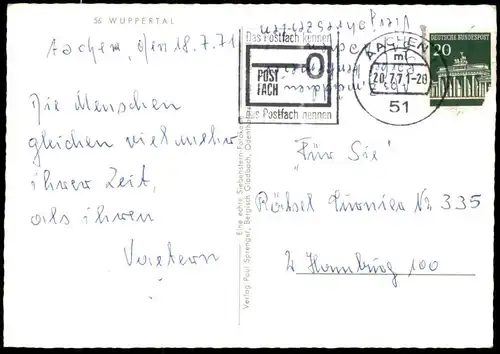 56 WUPPERTAL
Aachen, den 18.7.71
Die Menschen
gleichen viel mehr
ihrer Zeit,
als ihren
Vaetern
Eine echte Siebenstern-Fotokarte
Verlag Paul Sprenger, Bergisch Gladbach,
Das Postfach kennen
POST
FACH
Das Postfach nennen
AACHEN
mf
20.7.71-20
51
DEUTSCHE BUNDESPOST
20
Vierjahreszeiten
Aachen
"Für Sie"
Rätsel Turnier Nr 335
2 Hamburg 100